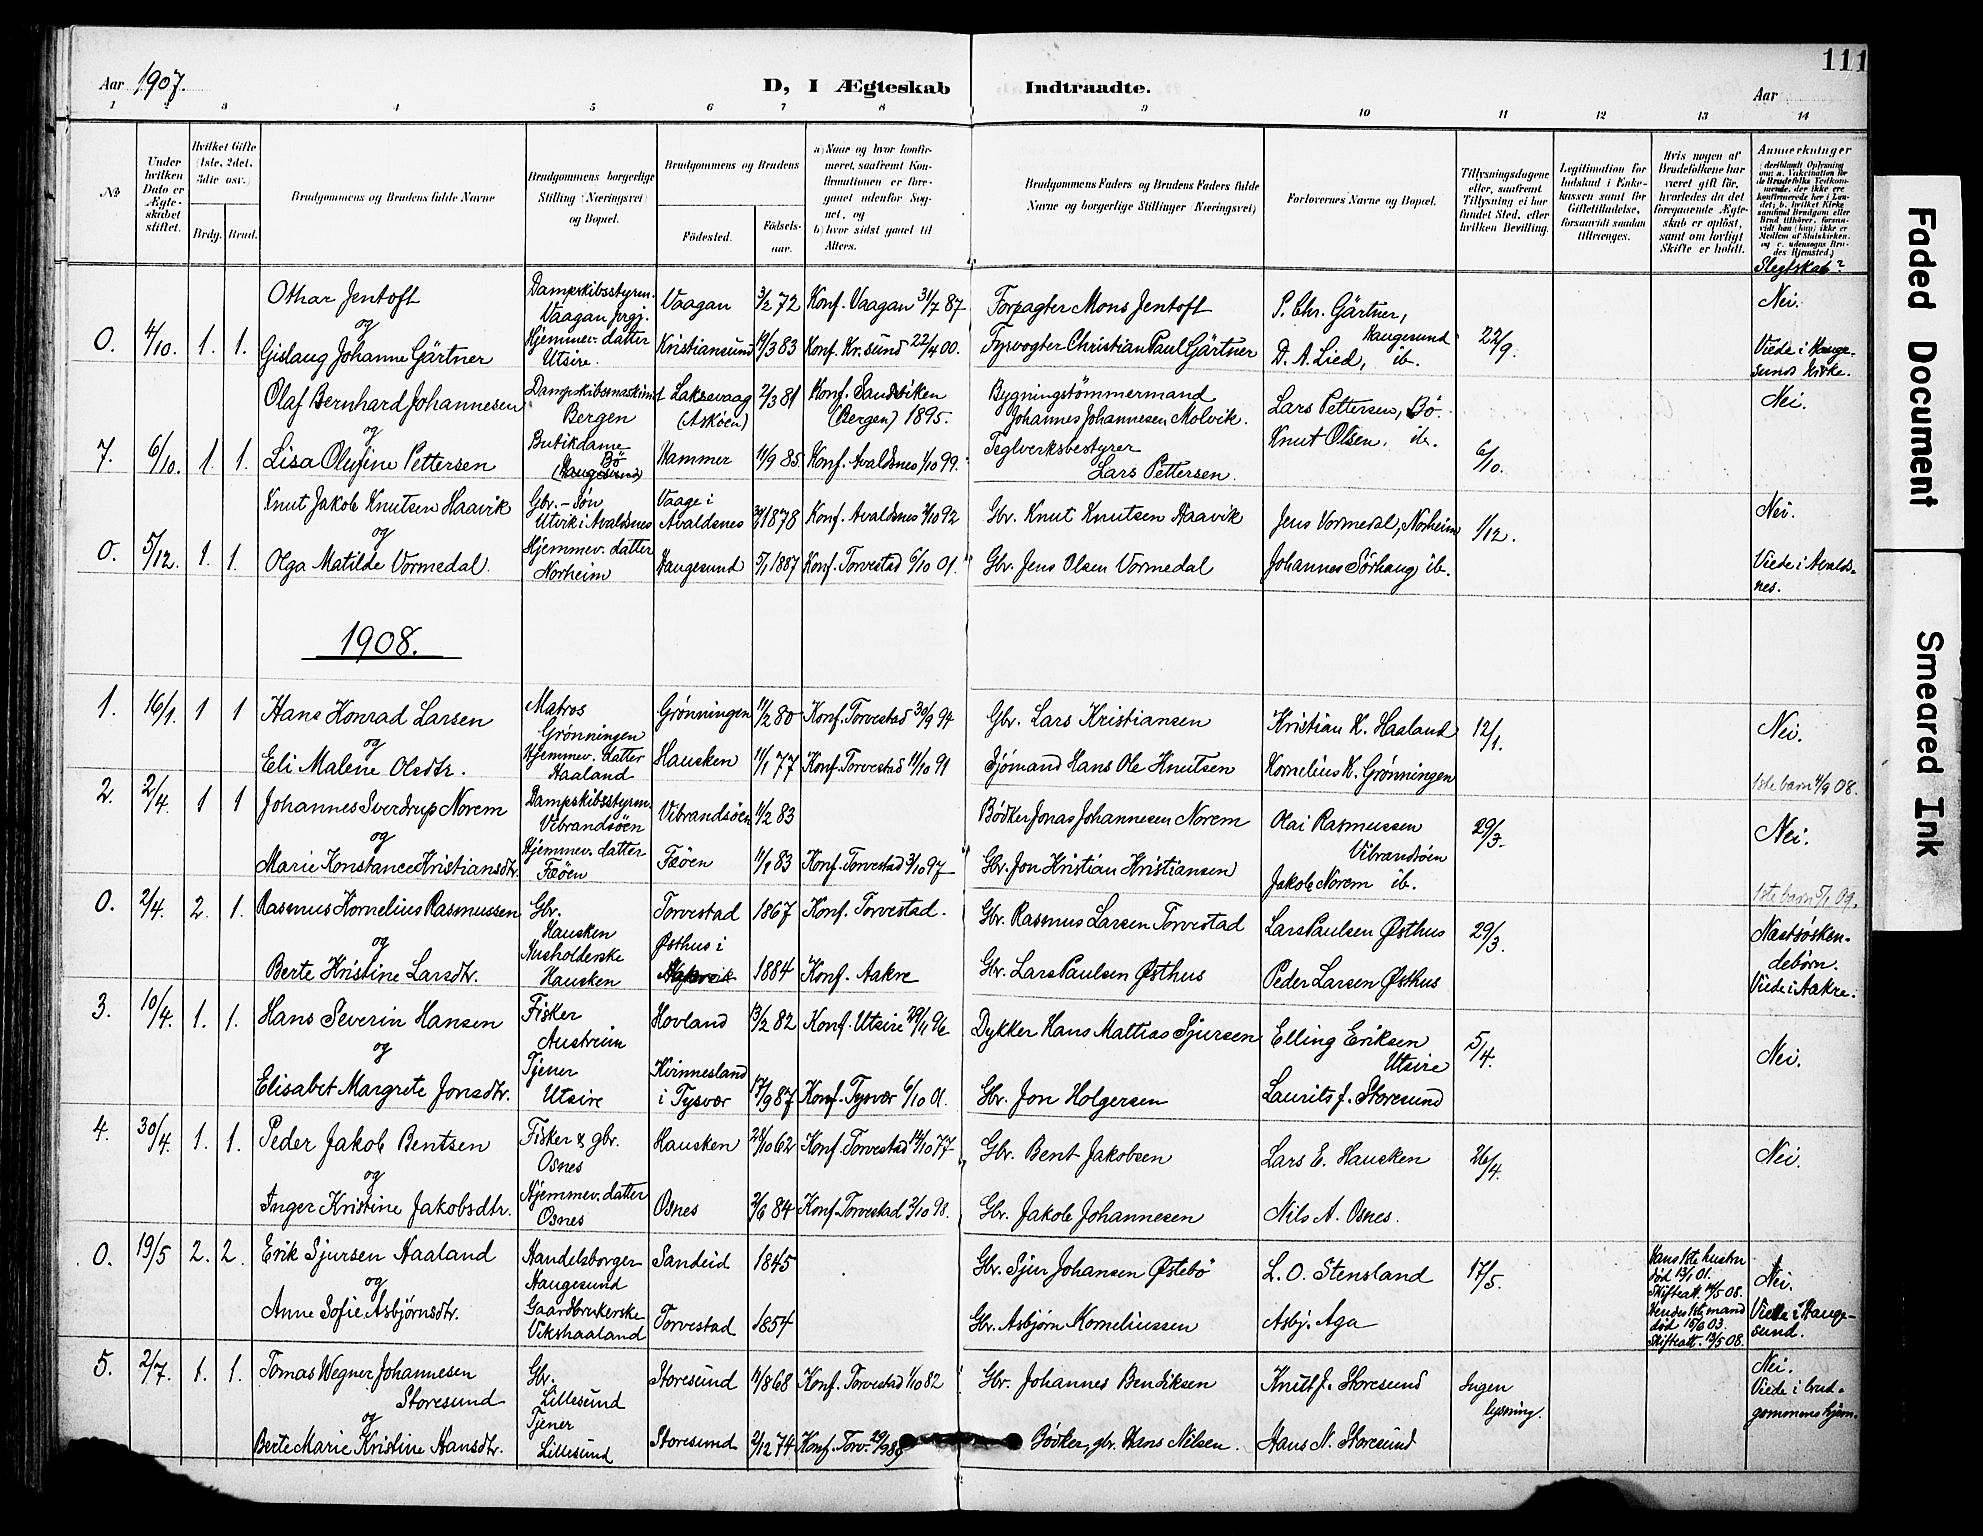 111
Aar 1907.
D, I Ægteskab Indtraadte.
Aar
1 2 3 4 5 6 7 8 9 10 11 12 13 14
№
Under hvilken Dato er Ægteskabet stiftet.
Hvilket Gifte (1ste, 2det, 3die osv.)
Brdg. Brud.
Brudgommens og Brudens fulde Navne
Brudgommens borgerlige Stilling (Næringsvei) og Bopæl.
Brudgommens og Brudens
Fødested.
Fødselsaar.
a) Naar og hvor konfirmeret, saafremt Konfirmationen er foregaaet udenfor Sognet, og
b) hvor sidst gaaet til Alters.
Brudgommens Faders og Brudens Faders fulde Navne og borgerlige Stillinger (Næringsvei)
Forlovernes Navne og Bopæl.
Tillysningsdagene eller, saafremt Tillysning ei har fundet Sted, efter hvilken Bevilling.
Legitimation for Indskud i Enkekassen samt for Giftetilladelse, forsaavidt saadan tiltrænges.
Hvis nogen af Brudefolkene har været gift før, hvorledes da det foregaaende Ægteskab er opløst, samt om lovligt Skifte er holdt.
Anmerkninger
(deriblandt Oplysning om: a. Vakcination for de Brudefolks Vedkommende, der ikke ere konfirmerede her i Landet; b. hvilket Kirkesamfund Brudgom eller Brud tilhører, forsaavidt han (hun) ikke er Medlem af Statskirken, og c. udensogns Brudes Hjemsted.)
Slegtskab?
0. 4/10. 1. 1. Othar Jentoft
og
Gislaug Johanne Gärtner
Dampskibsstyrm.
Vaagan prgj.
Hjemmev. datter
Utsire.
Vaagan 3/2 72 Konf. Vaagan 31/7 87
Kristiansund 19/3 83 Konf. Kr.sund 22/4 00.
Forpagter Mons Jentoft
Fyrvogter Christian Paul Gärtner
P. Chr. Gärtner,
Haugesund
D. A. Lied, ib.
22/9.
Nei.
Viede i Haugesunds Kirke.
7. 6/10. 1. 1. Olaf Bernhard Johannesen
og
Lisa Olufine Pettersen
Dampskibsmaskinist
Bergen
Butikdame
Bö
(Haugesund)
Laksevaag
(Asköen)
2/3 81 Konf. Sandviken
(Bergen) 1895.
Hammer 11/9 85 Konf. Avaldsnes 1/10 99.
Bygningstömmermand
Johannes Johannesen Molvik.
Teglverksbestyrer
Lars Pettersen.
Lars Pettersen, Bö.
Knut Olsen, ib.
6/10.
Nei.
0. 5/12. 1. 1. Knut Jakob Knutsen Haavik
og
Olga Matilde Vormedal.
Gbr.-Søn
Utvik i Avaldsnes
Hjemmev. datter
Norheim
Vaage i
Avaldsnes 1878 Konf. Avaldsnes 2/10 92
Haugesund 5/1 1887 Konf. Torvestad 6/10 01.
Gbr. Knut Knutsen Haavik
Gbr. Jens Olsen Vormedal
Jens Vormedal, Norheim
Johannes Sørhaug ib.
1/12.
Nei.
Viede i Avaldsnes.
1908.
1. 16/1. 1 1 Hans Konrad Larsen
og
Eli Malene Olsdtr.
Matros
Grönningen
Hjemmev. datter
Haaland
Grønningen 11/2 80 Konf. Torvestad 30/9 94
Hausken 11/1 77 Konf. Torvestad 11/10 91
Gbr. Lars Kristiansen
Sjömand Hans Ole Knutsen
Kristian K. Haaland
Kornelius K. Grønningen
12/1.
Nei.
1ste barn 4/9 08.
2. 2/4. 1 1 Johannes Sverdrup Norem
og
Marie Konstance Kristiansdtr.
Dampskibsstyrm.
Vibrandsöen
Hjemmev. datter
Fæöen
Vibrandsöen 11/2 83
Fæöen 11/1 83 Konf. Torvestad 3/10 97
Bödker Jonas Johannesen Norem
Gbr. Jon Kristian Kristiansen
Olai Rasmussen
Vibrandsöen
Jakob Norem ib.
29/3.
Nei.
1ste barn 5/1 09.
0. 2/4. 2. 1. Rasmus Kornelius Rasmussen
og
Berte Kristine Larsdtr.
Gbr.
Hausken
Husholderske
Hausken
Torvestad 1867 Konf. Torvestad.
Østhus i
1884 Konf. Aakre
Gbr. Rasmus Larsen Torvestad
Gbr. Lars Paulsen Østhus
Lars Paulsen Østhus
Peder Larsen Østhus
29/3.
Næstsøskendebørn.
Viede i Aakre.
3. 10/4. 1. 1. Hans Severin Hansen
og
Elisabet Margrete Jonsdtr.
Fisker
Austreim
Tjener
Utsire
Hovland 13/2 82 Konf. Utsire 29/11 96
Kvinnesland
i Tysvær 17/9 87 Konf. Tysvær 6/10 01.
Dykker Hans Mattias Sjursen
Gbr. Jon Holgersen
Elling Eriksen
Utsire
Laurits J. Storesund
5/4.
Nei.
4. 30/4. 1. 1. Peder Jakob Bentsen
og
Inger Kristine Jakobsdtr.
Fisker & gbr.
Osnes
Hjemmev. datter
Osnes
Hausken 28/10 62 Konf. Torvestad 14/10 77
Osnes 2/6 84 Konf. Torvestad 2/10 98.
Gbr. Bent Jakobsen
Gbr. Jakob Johannesen
Lars E. Hausken
Nils A. Osnes.
26/4.
Nei.
0. 19/5 2. 2. Erik Sjursen Haaland
og
Anne Sofie Asbjörnsdtr.
Handelsborger
Haugesund
Gaardbrukerske
Vikshaaland
Sandeid 1845
Torvestad 1854
Gbr. Sjur Johansen Østebö
Gbr. Asbjørn Korneliussen
L. O. Stensland
Asbj. Aga
17/5.
Hans 1ste hustru
död 13/1 01.
Skifteatt. 14/5 08.
Hendes 1ste mand
död 15/6 03.
Skifteatt. 13/5 08.
Nei.
Viede i Haugesund.
5. 2/7. 1. 1. Tomas Wegner Johannesen
Storesund
og
Berte Marie Kristine Hansdtr.
Gbr.
Lillesund
Tjener
Lillesund
Storesund 11/8 68 Konf. Torvestad 1/10 82
Storesund 2/12 74 Konf. Torv. 29/9 89
Gbr. Johannes Bendiksen
Bödker, gbr. Hans Nilsen.
Knut J. Storesund
Hans N. Storesund
Ingen
lysning.
Nei.
Viede i brudgommens hjem.
Faded Document
Smeared Ink